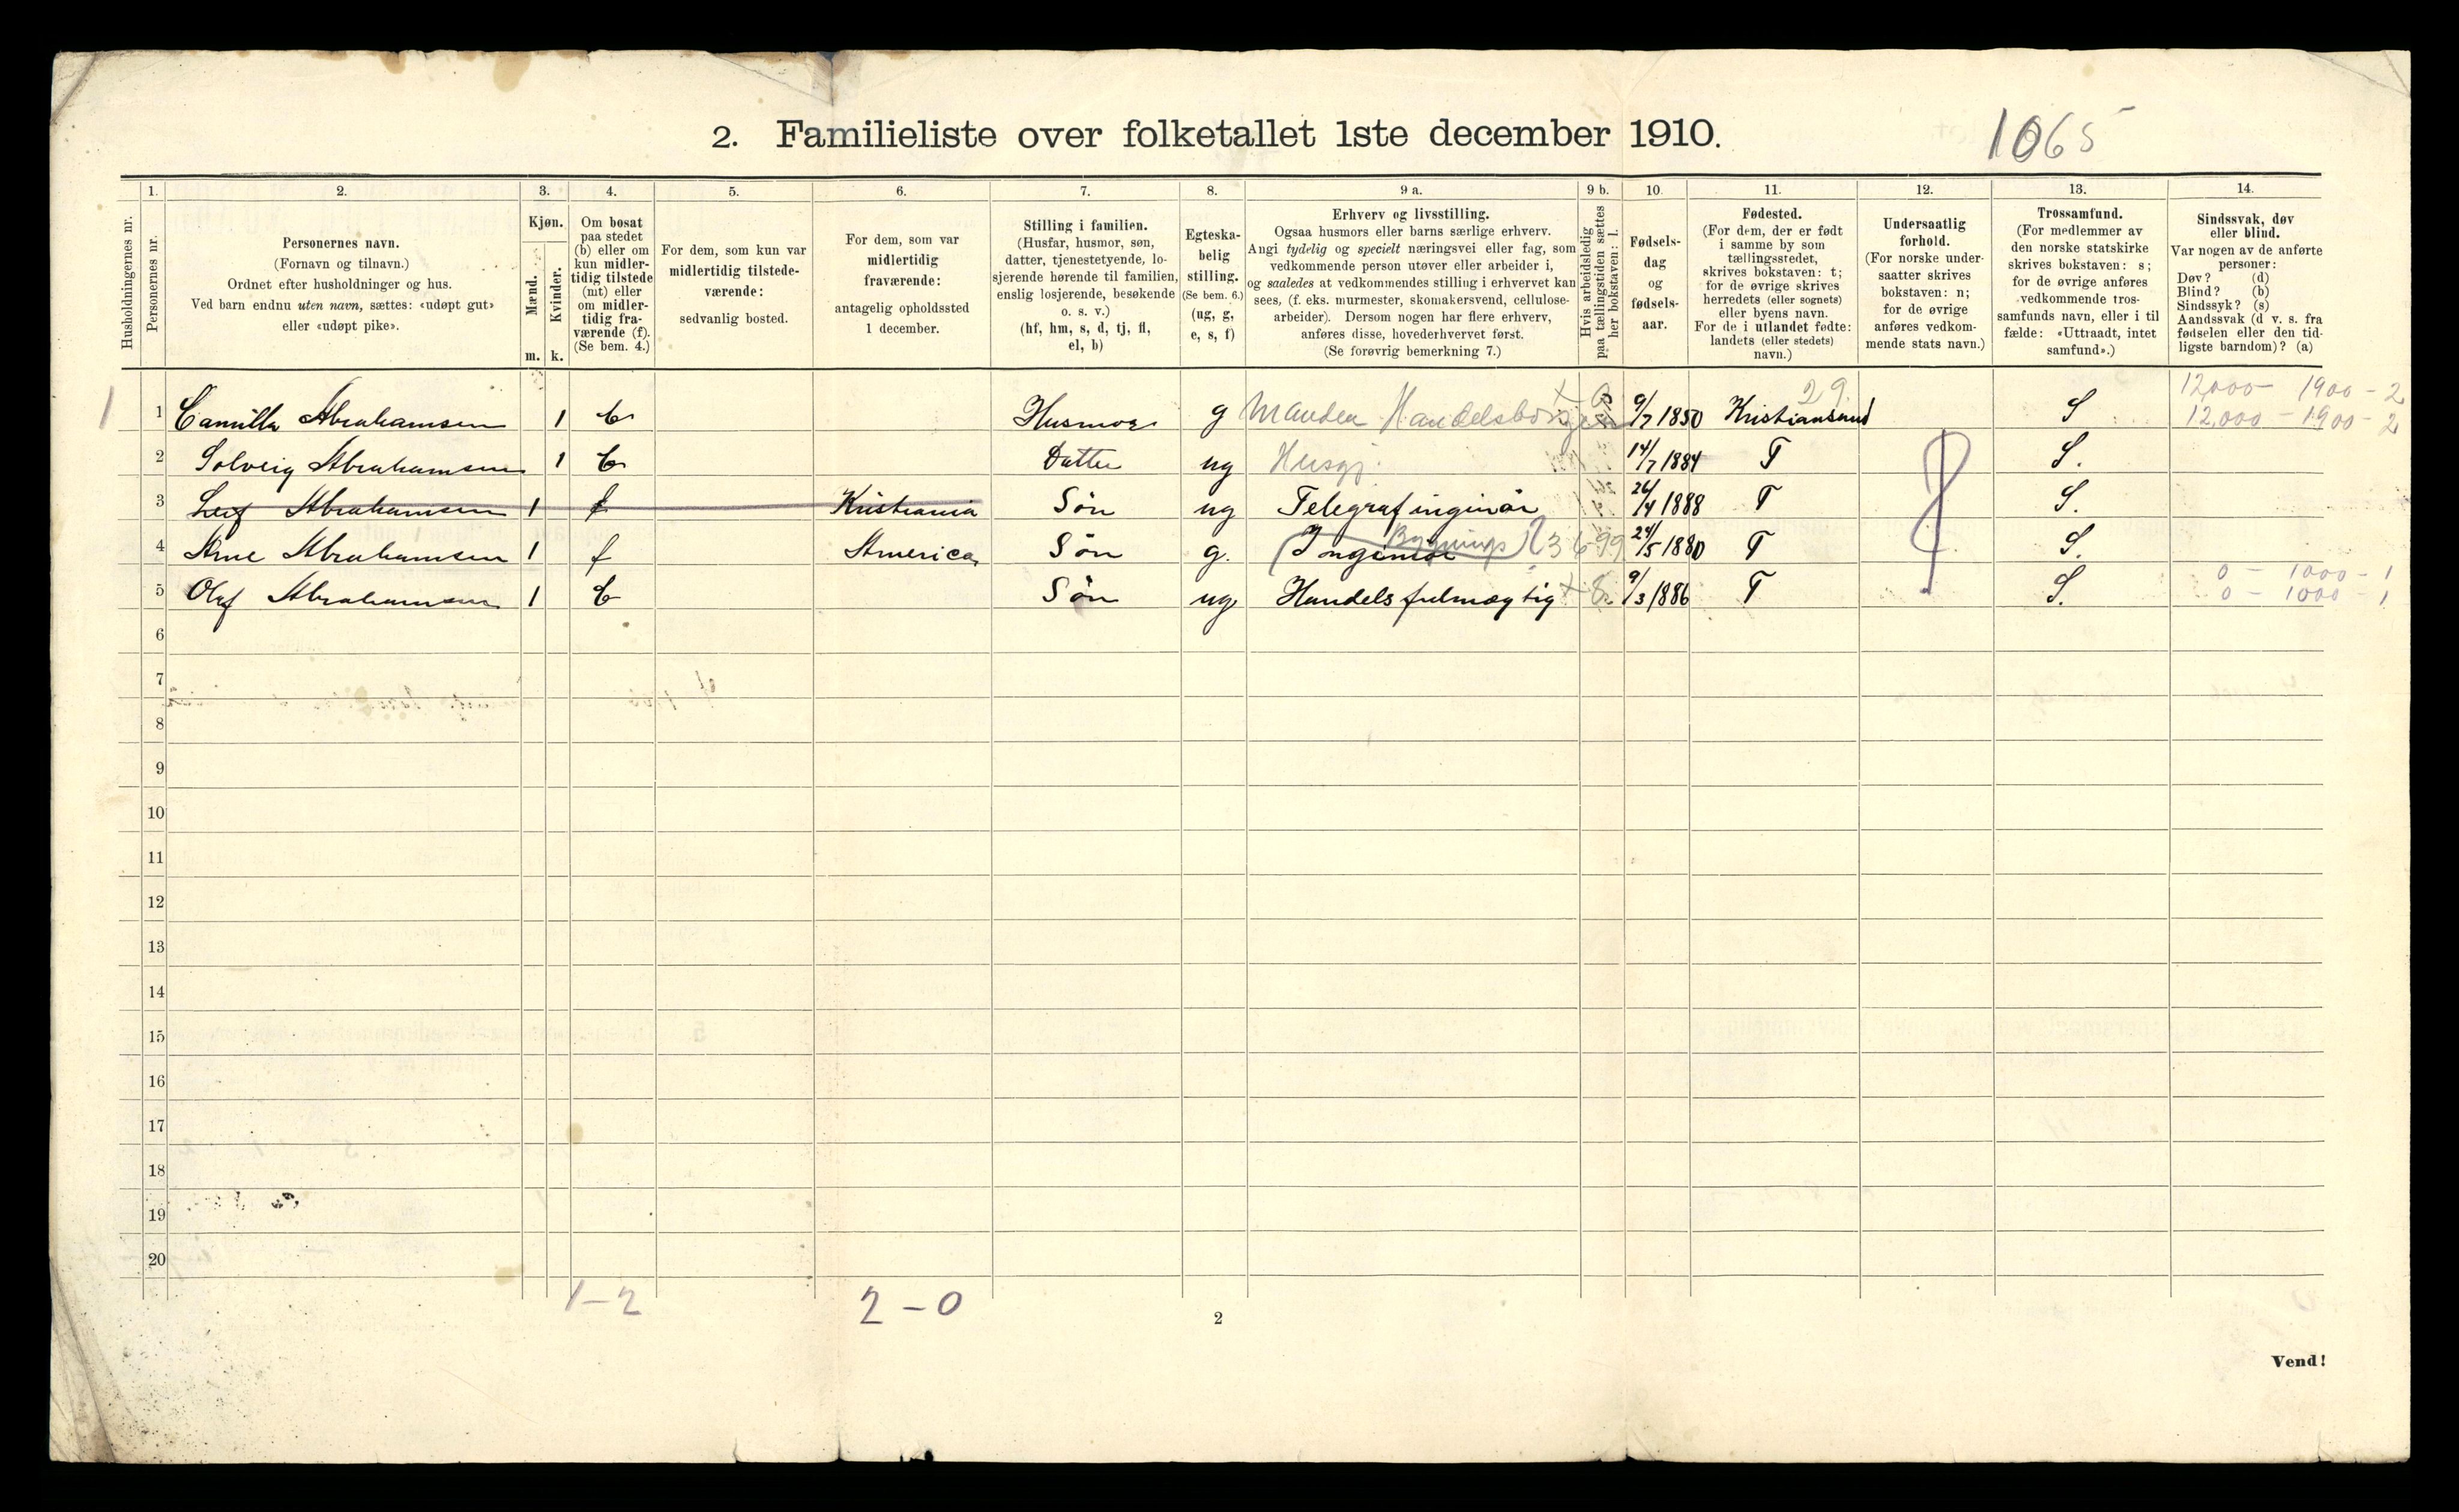 2. Familieliste over folketallet 1ste december 1910.
1065
1. 2. 3. 4. 5. 6. 7. 8. 9 a. 9 b. 10. 11. 12. 13. 14.
Husholdningernes nr.
Personernes nr.
Personernes navn.
(Fornavn og tilnavn.)
Ordnet efter husholdninger og hus.
Ved barn endnu uten navn, sættes: «udøpt gut»
eller «udøpt pike».
Kjøn.
Mænd.
Kvinder.
m. k.
Om bosat
paa stedet
(b) eller om
kun midler-
tidig tilstede
(mt) eller
om midler-
tidig fra-
værende (f).
(Se bem. 4.)
For dem, som kun var
midlertidig tilstede-
værende:
sedvanlig bosted.
For dem, som var
midlertidig
fraværende:
antagelig opholdssted
1 december.
Stilling i familien.
(Husfar, husmor, søn,
datter, tjenestetyende, lo-
sjerende hørende til familien,
enslig losjerende, besøkende
o. s. v.)
(hf, hm, s, d, tj, fl,
el, b)
Egteska-
belig
stilling.
(Se bem. 6.)
(ug, g,
e, s, f)
Erhverv og livsstilling.
Ogsaa husmors eller barns særlige erhverv.
Angi tydelig og specielt næringsvei eller fag, som
vedkommende person utøver eller arbeider i,
og saaledes at vedkommendes stilling i erhvervet kan
sees, (f. eks. murmester, skomakersvend, cellulose-
arbeider). Dersom nogen har flere erhverv,
anføres disse, hovederhvervet først.
(Se forøvrig bemerkning 7.)
Hvis arbeidsledig
paa tællingstiden sættes
her bokstaven: l.
Fødsels-
dag
og
fødsels-
aar.
Fødested.
(For dem, der er født
i samme by som
tællingsstedet,
skrives bokstaven: t;
for de øvrige skrives
herredets (eller sognets)
eller byens navn.
For de i utlandet fødte:
landets (eller stedets)
navn.)
Undersaatlig
forhold.
(For norske under-
saatter skrives
bokstaven: n;
for de øvrige
anføres vedkom-
mende stats navn.)
Trossamfund.
(For medlemmer av
den norske statskirke
skrives bokstaven: s;
for de øvrige anføres
vedkommende tros-
samfunds navn, eller i til
fælde: «Uttraadt, intet
samfund».)
Sindssvak, døv
eller blind.
Var nogen av de anførte
personer:
Døv? (d)
Blind? (b)
Sindssyk? (s)
Aandssvak (d v. s. fra
fødselen eller den tid-
ligste barndom)? (a)
29
12,000 – 1900 – 2
1 1 Camilla Abrahamsen 1 b Husmor g Manden Handelsborger 9/7 1850 Kristiansund S 12,000 – 1900 – 2
2 Solveig Abrahamsen 1 b Datter ug Husgj. 14/7 1884 T S.
3 Leif Abrahamsen 1 f Kristiania Sön ug Telegrafinginör 26/4 1888 T S.
4 Arne Abrahamsen 1 f America Sön g. Inginiör Bygnings 24/5 1880 T S.
0 – 1000 – 1
5 Olaf Abrahamsen 1 b Sön ug Handelsfulmægtig 9/3 1886 T S. 0 – 1000 – 1
6
7
8
9
10
11
12
13
14
15
16
17
18
19
20
1 – 2 2 – 0
2
Vend!